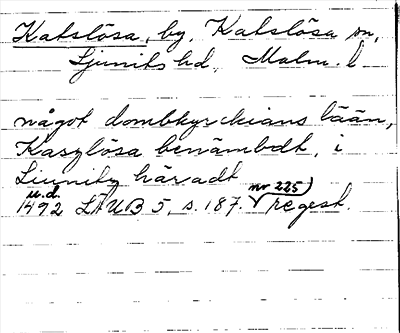 Katslösa, by, Katslösa sn,
Ljunits hd, Malm. l
något dombkyrckians lään,
Karzlösa benämbdt, i
Liunitz häradt
u.d. nr 225)
1492 LÄUB 5, s. 187. regest.